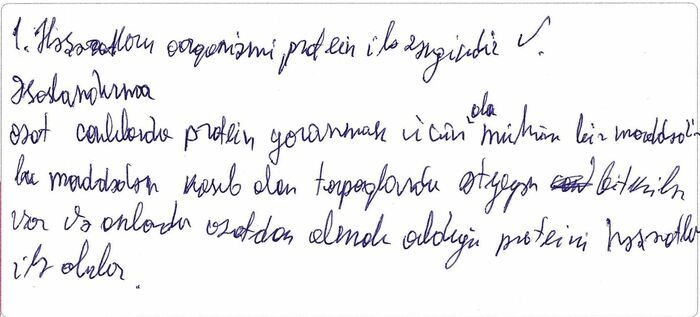 1. Həşəratların orqanizmi protein ilə zəngindir ✓.
Əsaslandırma
azot canlılarda protein yaranmaq üçün ola mühüm bir maddədi.
bu maddədən kasıb olan torpaqlarda ətyeyən bitkilər
var və onlarda azotdan almalı olduğu proteini həşəratlar
ilə alırlar.